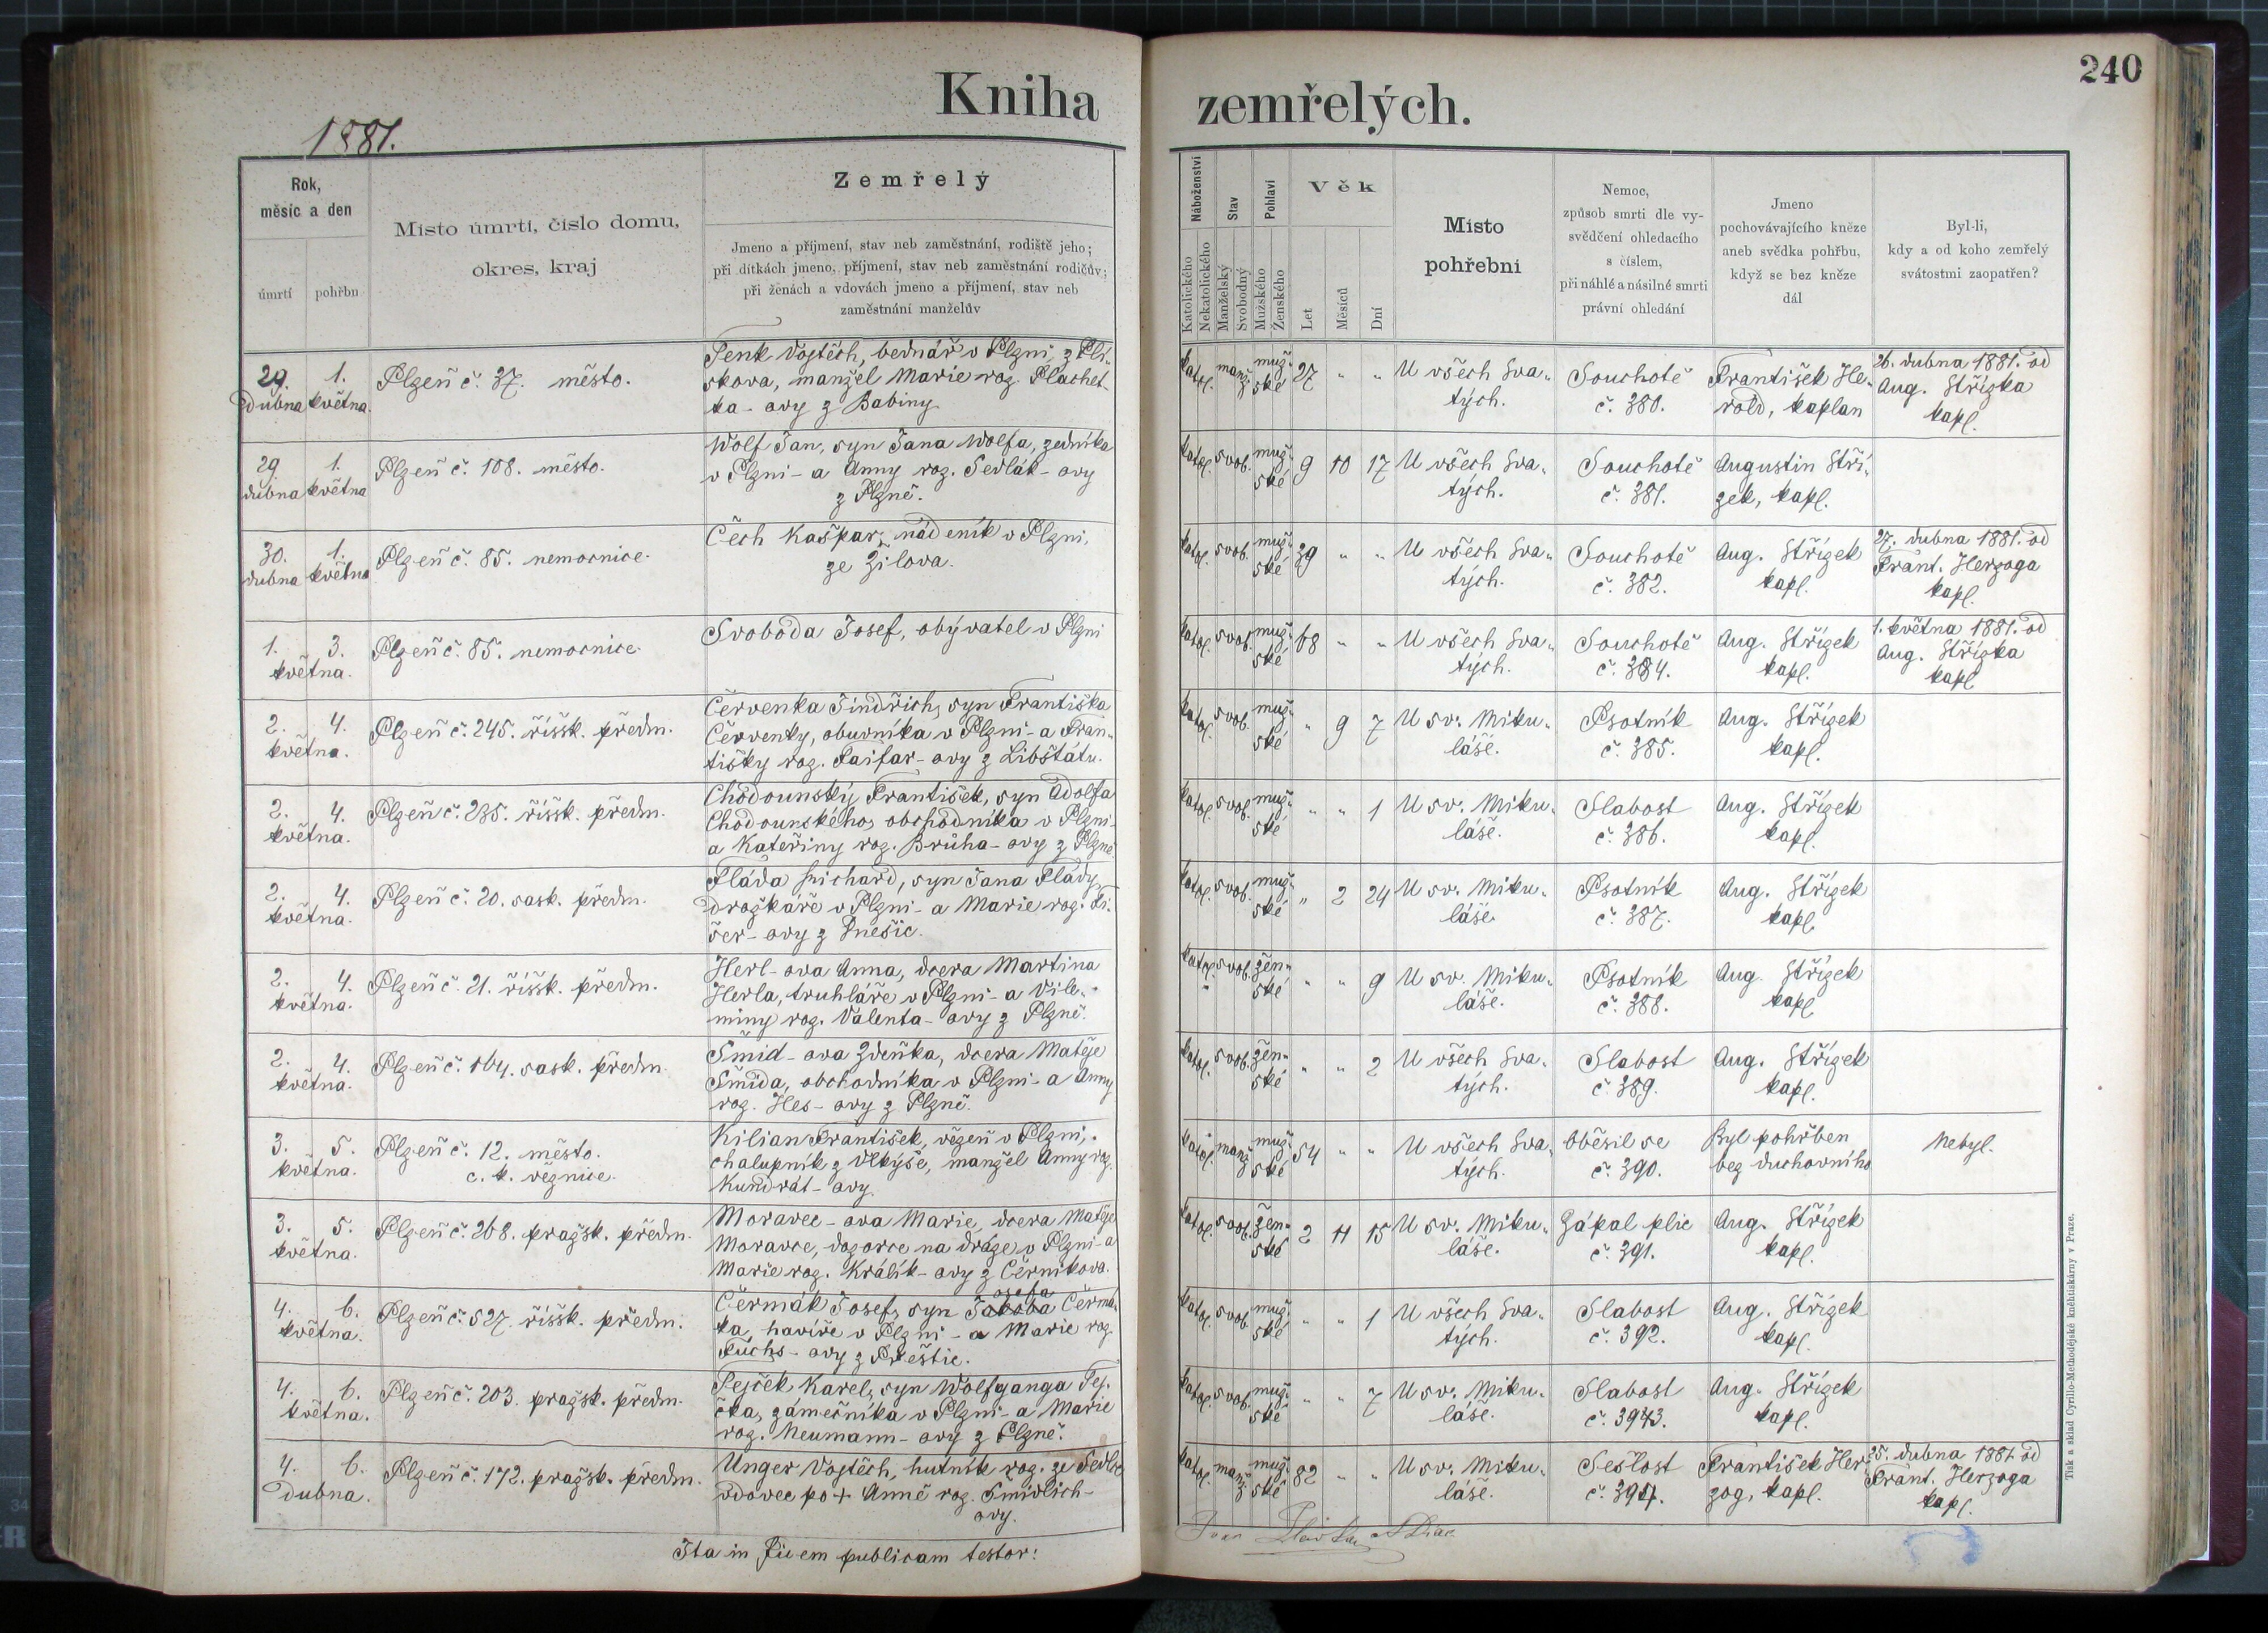 240
Kniha zemřelých.
1881.
Rok,
měsíc a den
úmrtí
pohřbu
Místo úmrtí, číslo domu,
okres, kraj
Zemřelý
Jmeno a příjmení, stav neb zaměstnání, rodiště jeho;
při dítkách jmeno, příjmení, stav neb zaměstnání rodičův;
při ženách a vdovách jmeno a příjmení, stav neb
zaměstnání manželův
Náboženství
Katolického
Nekatolického
Stav
Manželský
Svobodný
Pohlaví
Mužského
Ženského
Věk
Let
Měsíců
Dní
Místo
pohřební
Nemoc,
způsob smrti dle vy-
svědčení ohledacího
s číslem,
při náhlé a násilné smrti
právní ohledání
Jmeno
pochovávajícího kněze
aneb svědka pohřbu,
když se bez kněze
dál
Byl-li,
kdy a od koho zemřelý
svátostmi zaopatřen?
29. 1.
dubna května.
Plzeň č. 37. město.
Penk Vojtěch, bednář v Plzni, z Plí-
skova, manžel Marie roz. Plachet-
ka-ovy z Babiny
katol. manž. muž-
ské 27 " "
U všech Sva-
tých.
Souchotě
č. 380.
František He-
rold, kaplan
26. dubna 1881. od
Aug. Střízka
kapl.
29. 1.
dubna května
Plzeň č. 108. město.
Wolf Jan, syn Jana Wolfa, zedníka
v Plzni - a Anny roz. Sedlák-ovy
z Plzně.
katol. svob. muž-
ské 9 10 17
U všech Sva-
tých.
Souchotě
č. 381.
Augustin Stří-
zek, kapl.
30. 1.
dubna května
Plzeň č. 85. nemocnice.
Čech Kašpar, nádeník v Plzni,
ze Žilova.
katol. svob. muž-
ské 39 " "
U všech Sva-
tých.
Souchotě
č. 382.
Aug. Střízek
kapl.
27. dubna 1881. od
Frant. Herzoga
kapl.
1. 3.
května.
Plzeň č. 85. nemocnice.
Svoboda Josef, obývatel v Plzni
katol. svob. muž-
ské 68 " "
U všech Sva-
tých.
Souchotě
č. 384.
Aug. Střízek
kapl.
1. května 1881. od
Aug. Střízka
kapl.
2. 4.
května.
Plzeň č. 245. říšsk. předm.
Červenka Jindřich, syn Františka
Červenky, obuvníka v Plzni - a Fran-
tišky roz. Faifar-ovy z Libštátu.
katol. svob. muž-
ské " 9 7
U sv. Miku-
láše.
Psotník
č. 385.
Aug. Střízek
kapl.
2. 4.
května.
Plzeň č. 235. říšsk. předm.
Chodounský František, syn Adolfa
Chodounského, obchodníka v Plzni-
a Kateřiny roz. Brůha-ovy z Plzně
katol. svob. muž-
ské " " 1
U sv. Miku-
láše.
Slabost
č. 386.
Aug. Střízek
kapl.
2. 4.
května.
Plzeň č. 20. sask. předm.
Fláda Richard, syn Jana Flády,
drožkáře v Plzni - a Marie roz. Fi-
šer-ovy z Dnešic.
katol. svob. muž-
ské " 2 24
U sv. Miku-
láše.
Psotník
č. 387.
Aug. Střízek
kapl.
2. 4.
května.
Plzeň č. 21. říšsk. předm.
Herl-ova Anna, dcera Martina
Herla, truhláře v Plzni - a Vile-
míny roz. Valenta-ovy z Plzně.
katol. svob. žen-
ské " " 9
U sv. Miku-
láše.
Psotník
č. 388.
Aug. Střízek
kapl.
2. 4.
května.
Plzeň č. 164. sask. předm.
Šmid-ova Zdeňka, dcera Matěje
Šmída, obchodníka v Plzni - a Anny
roz. Hes-ovy z Plzně.
katol. svob. žen-
ské " " 2
U všech Sva-
tých.
Slabost
č. 389.
Aug. Střízek
kapl.
3. 5.
května.
Plzeň č. 12. město.
c. k. věznice.
Kilian František, vězeň v Plzni,
chalupník z Vlkýše, manžel Anny roz.
Kundrát-ovy.
katol. manž. muž-
ské 54 " "
U všech Sva-
tých.
Oběsil se
č. 390.
Byl pohřben
bez duchovního
Nebyl.
3. 5.
května.
Plzeň č. 268. pražsk. předm.
Moravec-ova Marie, dcera Matěje
Moravce, dozorce na dráze v Plzni - a
Marie roz. Králík-ovy z Černíkova.
katol. svob. žen-
ské 2 11 15
U sv. Miku-
láše.
Zápal plic
č. 391.
Aug. Střízek
kapl.
4. 6.
května.
Plzeň č. 527. říšsk. předm.
Čermák Josef, syn Jakoba osefa Čermá-
ka, havíře v Plzni - a Marie roz.
Fuchs-ovy z Přeštic.
katol. svob. muž-
ské " " 1
U všech Sva-
tých.
Slabost
č. 392.
Aug. Střízek
kapl.
4. 6.
května.
Plzeň č. 203. pražsk. předm.
Pejček Karel, syn Wolfganga Pej-
čka, zámečníka v Plzni - a Marie
roz. Neumann-ovy z Plzně.
katol. svob. muž-
ské " " 7
U sv. Miku-
láše.
Slabost
č. 393.
Aug. Střízek
kapl.
4. 6.
dubna.
Plzeň č. 172. pražsk. předm.
Unger Vojtěch, hutník roz. ze Sedlce
vdovec po + Anně roz. Šmidlich-
ovy.
katol. manž. muž-
ské 82 " "
U sv. Miku-
láše.
Sešlost
č. 394.
František Her-
zog, kapl.
25. dubna 1881. od
Frant. Herzoga
kapl.
Ita in fidem publicam testor:
Tisk a sklad Cyrillo-Methodějské kněhtiskárny v Praze.